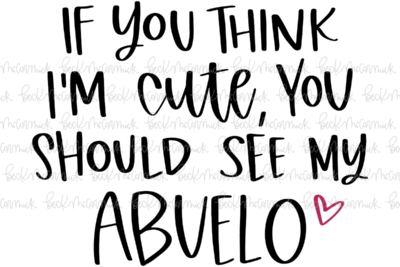 IF YOU THINK
I'M cute, YOU
SHOULD SEE MY
ABUELO